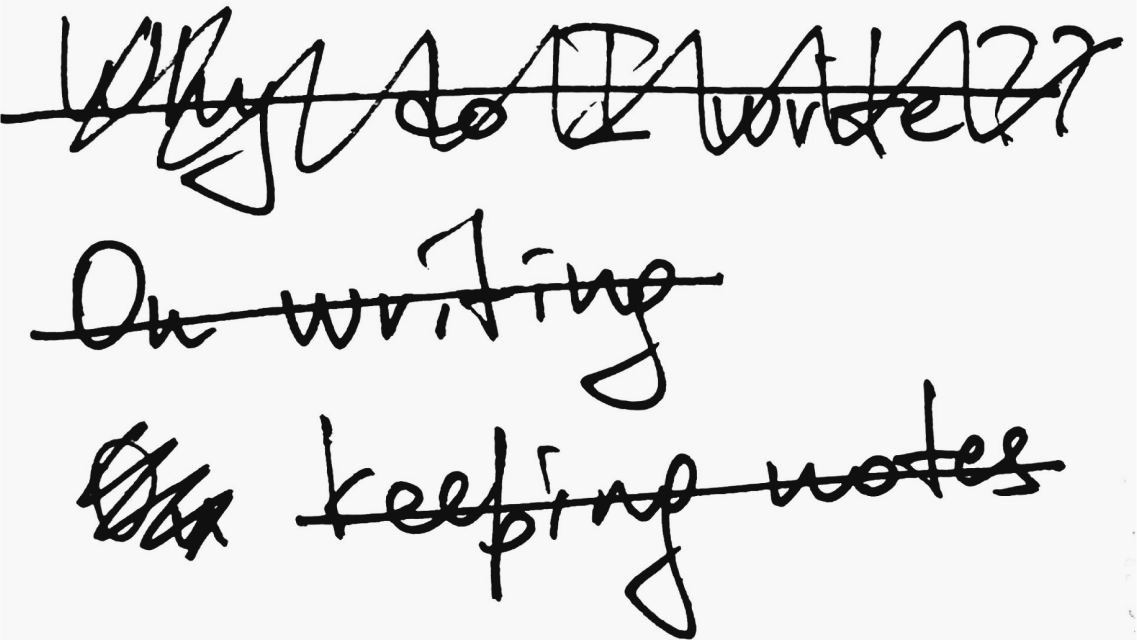 Why do I write??
On writing
On keeping notes